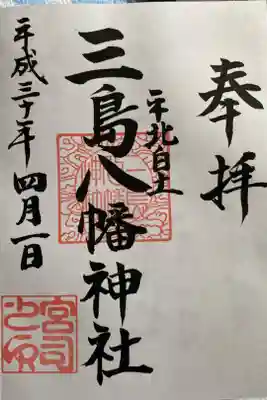 奉拝
平北白土
三島八幡神社
平成三十年四月一日
宮司